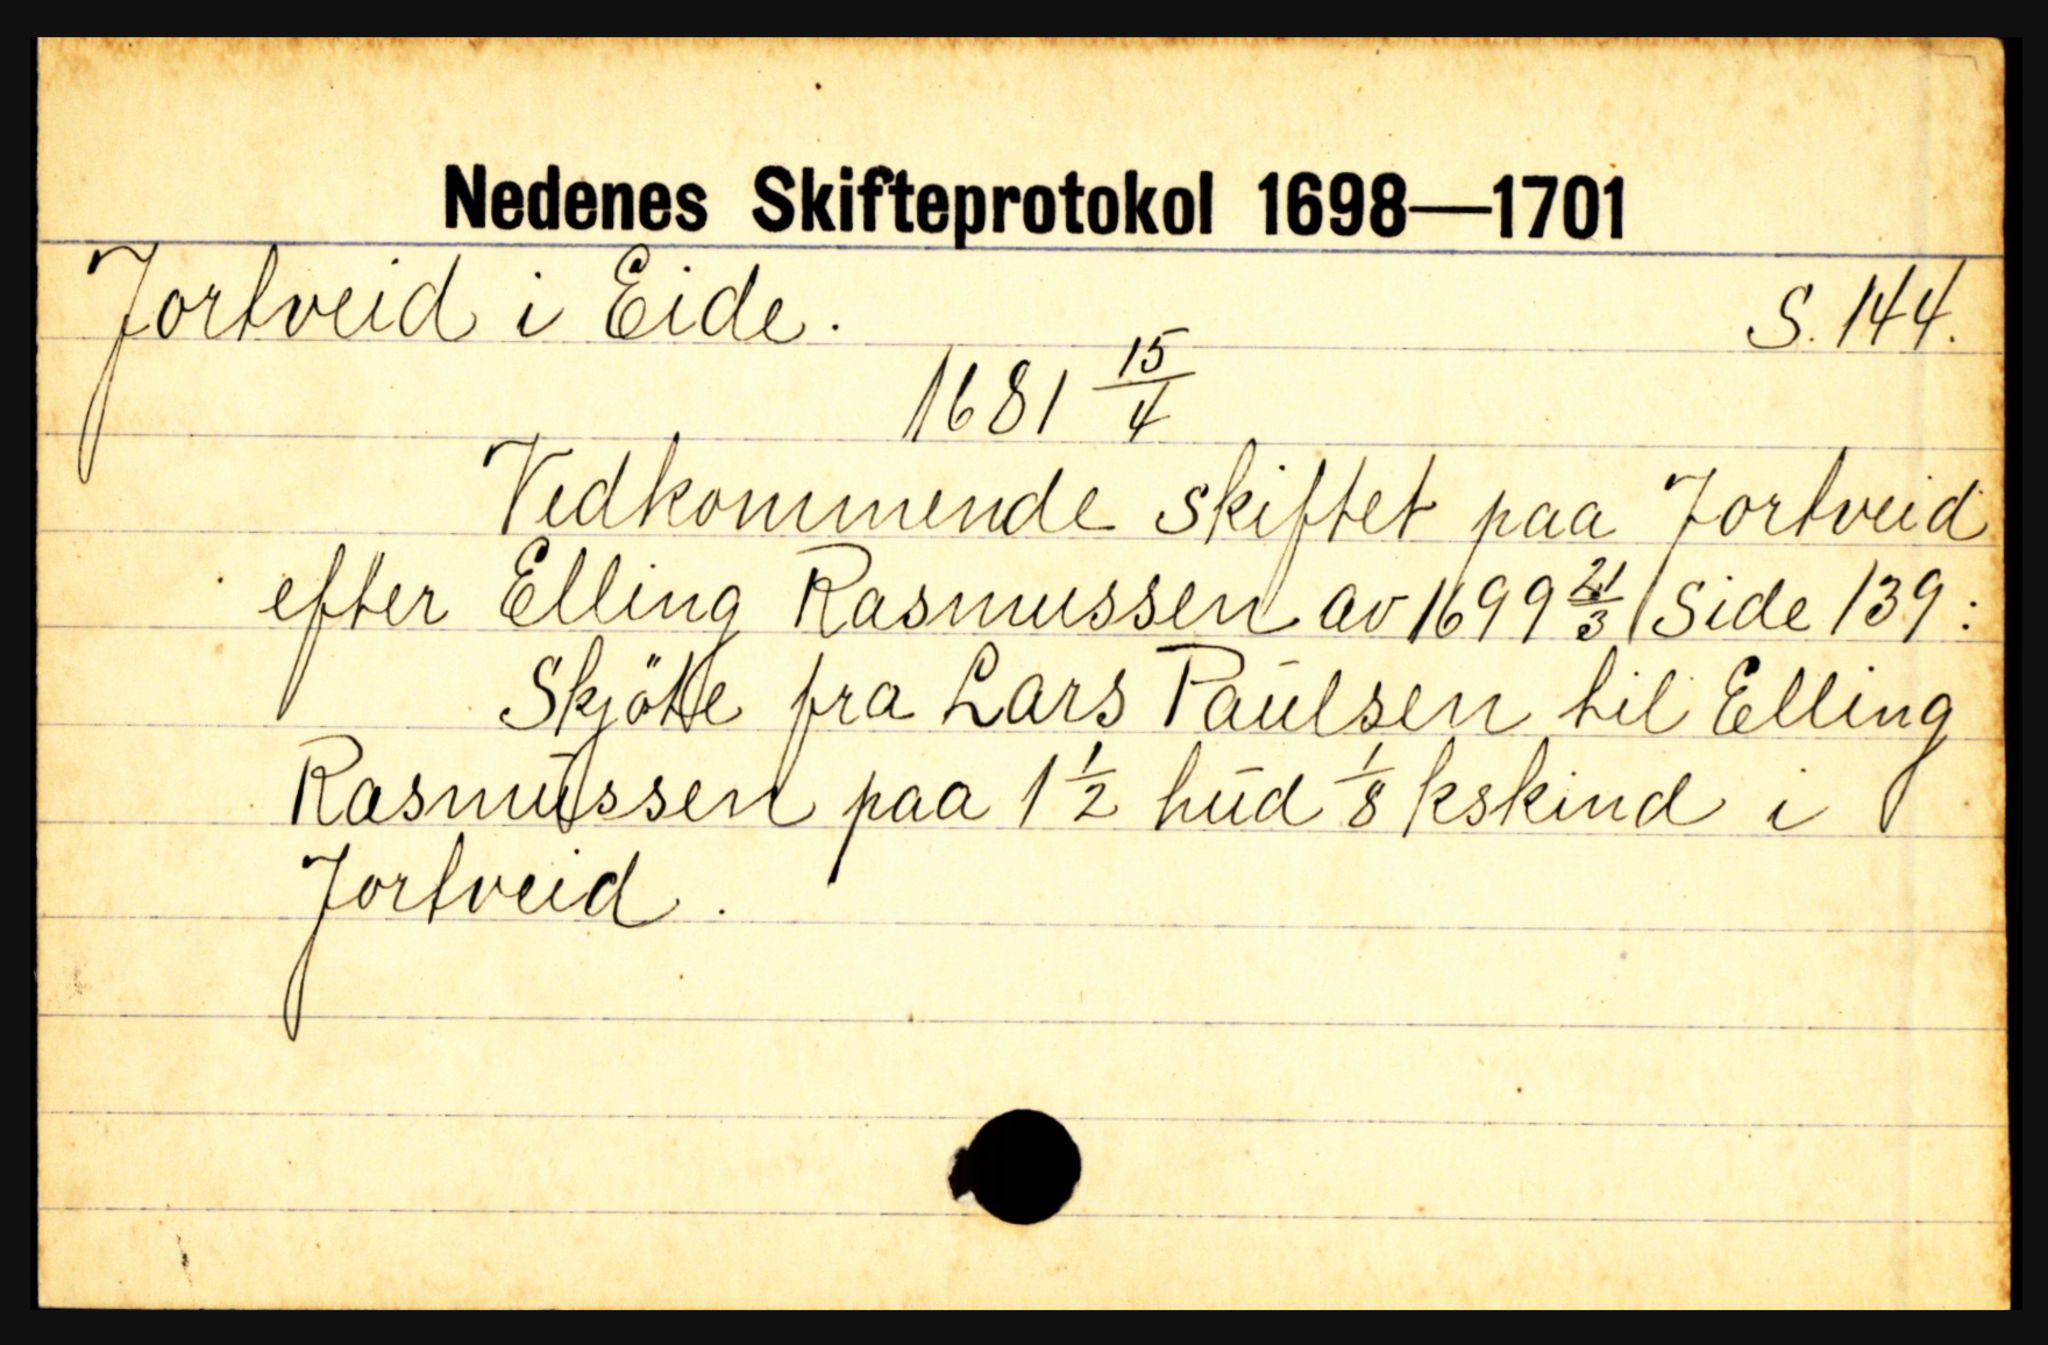 Nedenes Skifteprotokol 1698—1701
Jortveid i Eide. S. 144.
1681 15/4
Vedkommende skiftet paa Jortveid
efter Elling Rasmussen av 1699 21/3 Side 139:
Skjöte fra Lars Paulsen til Elling
Rasmussen paa 1 1/2 hud 1/8 kskind i
Jortveid.